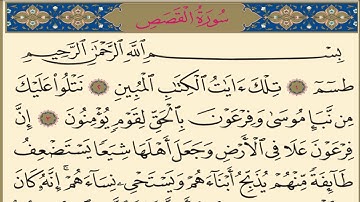 سُورَةُ الْقَصَصِ
بِسْمِ اللَّهِ الرَّحْمَٰنِ الرَّحِيمِ
طسٓمٓ ١ تِلْكَ ءَايَٰتُ الْكِتَٰبِ الْمُبِينِ ٢ نَتْلُوا۟ عَلَيْكَ
مِن نَّبَإِ مُوسَىٰ وَفِرْعَوْنَ بِالْحَقِّ لِقَوْمٍ يُؤْمِنُونَ ٣ إِنَّ
فِرْعَوْنَ عَلَا فِي الْأَرْضِ وَجَعَلَ أَهْلَهَا شِيَعًا يَسْتَضْعِفُ
طَآئِفَةً مِّنْهُمْ يُذَبِّحُ أَبْنَآءَهُمْ وَيَسْتَحْيِۦ نِسَآءَهُمْ ۚ إِنَّهُۥ كَانَ